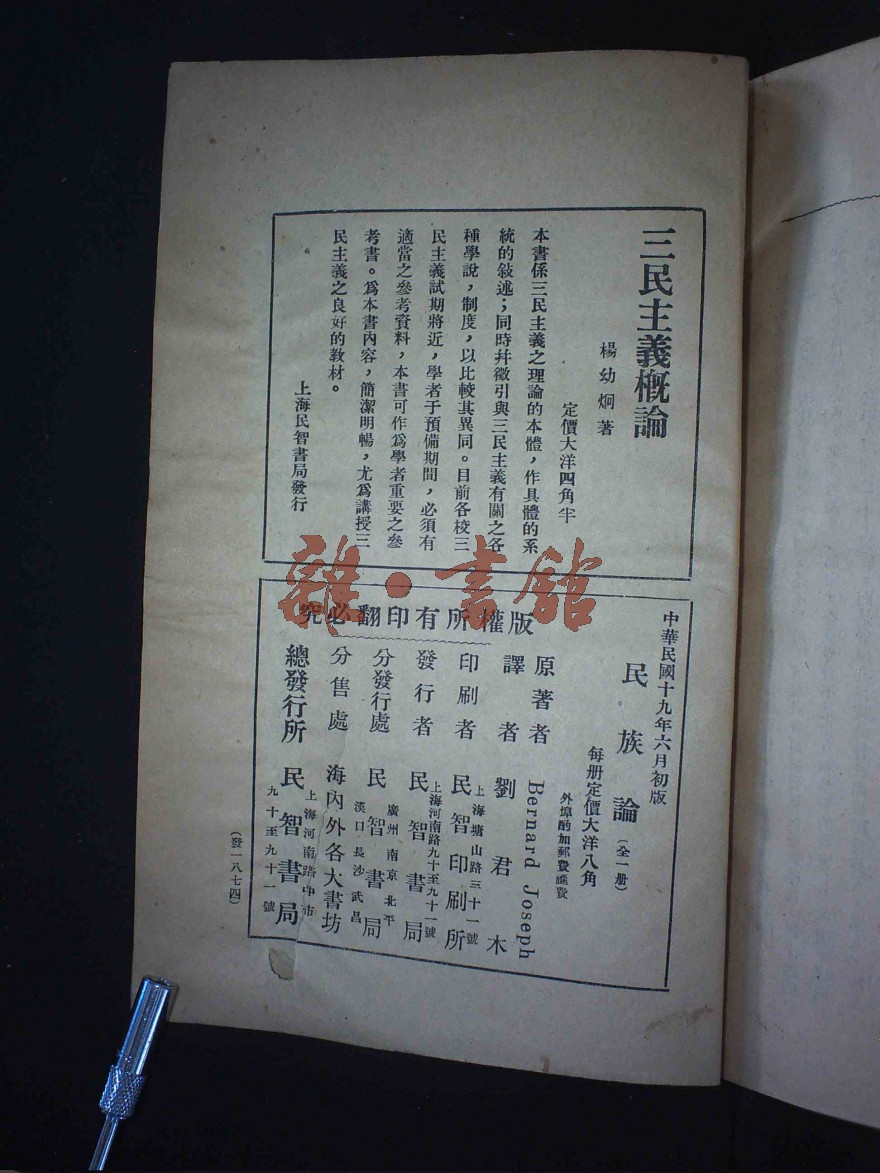 三民主義概論
楊幼炯著
定價大洋四角半
本書係三民主義之理論的本體，作具體的系
統的敍述；同時幷徵引與三民主義有關之各
種學說，制度，以比較其異同。目前各校三
民主義試期將近，學者于預備期間，必須有
適當之參考資料，本書可作爲學者重要之參
考書。爲本書內容，簡潔明暢，尤爲講授三
民主義之良好的教材。
上海民智書局發行
雜·書館
版權所有印翻必究
中華民國十九年六月初版
民族論（全一册）
每册定價大洋八角
外埠酌加郵費滙費
原著者 Bernard Joseph
譯者 劉君木
印刷者 民智印刷所 上海塘山路三十一號
發行者 民智書局 上海河南路九十至九十一號
分發行處 民智書局 廣州 南京 北平 漢口 長沙 武昌
分售處 海內外各大書坊
總發行所 民智書局 上海河南路中市 九十至九十一號
（發一八七四）